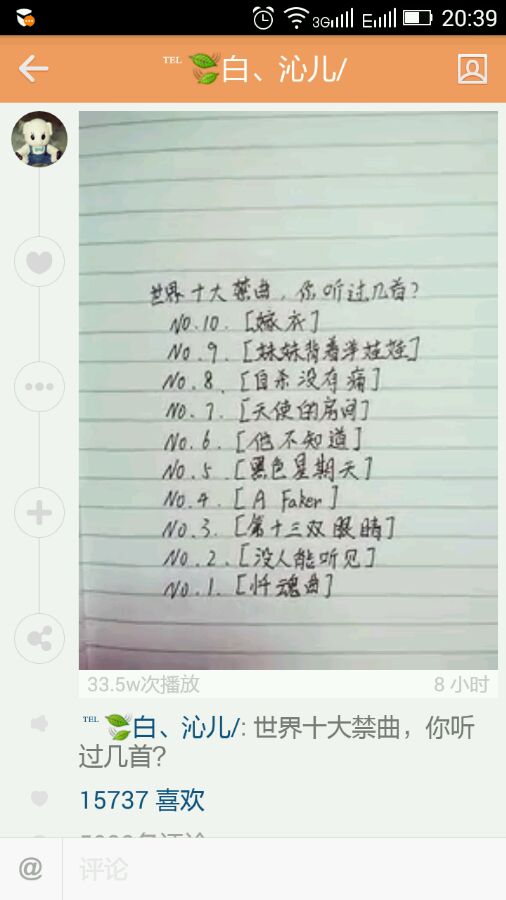 3G
E
20:39
TEL 白、沁儿/
世界十大禁曲，你听过几首?
No.10.［嫁衣］
No.9.［妹妹背着洋娃娃］
No.8.［自杀没有痛］
No.7.［天使的房间］
No.6.［他不知道］
No.5.［黑色星期天］
No.4.［A Faker］
No.3.［第十三双眼睛］
No.2.［没人能听见］
No.1.［忏魂曲］
33.5w次播放
8 小时
TEL 白、沁儿/: 世界十大禁曲，你听
过几首?
15737 喜欢
@
评论